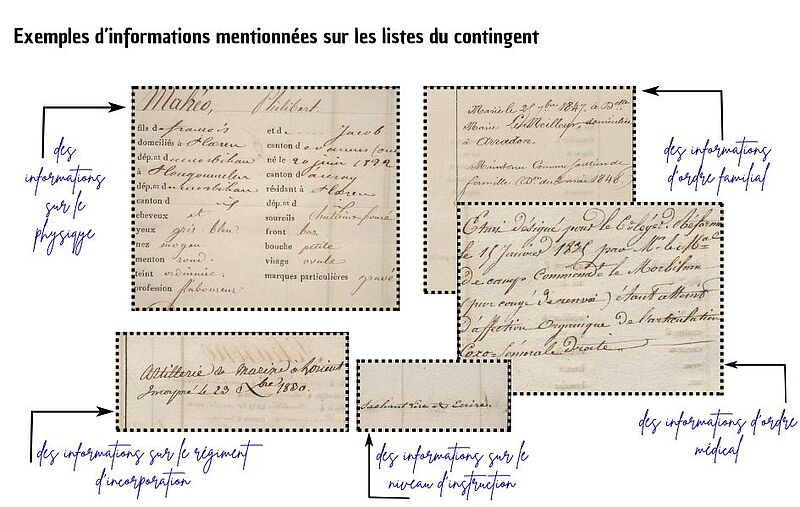 Exemples d'informations mentionnées sur les listes du contingent
des
informations
sur le
physiqye
Mahéo, Philibert.
fils de françois
domiciliés à Ploeren
dép.nt d morbihan
à Plougoumelen
dép.nt d morbihan
canton d
cheveux et
yeux gris-bleu
nez moyen
menton rond.
teint ordinaire.
profession laboureur
et de Jacob
canton d vannes
né le 20 juin
canton d auray
résidant à Ploeren
dép.nt d
sourcils châtain-foncé
front bas.
bouche petite
visage ovale
marques particulières gravé
Marié le 25 7bre 1847. à Delle
Marie Le Meilleur, domiciliée
à Arradon.
Maintenu Comme soutien de
famille
des informations
d'ordre familial
Etant désigné pour le
le 15 Janvier 1835 par Mr le Mal
de camp Commandt le Morbihan
(par congé de renvoi) étant atteint
d'affection Organique de l'articulation
Coxo-fémorale Droite
des informations d'ordre
médical
Artillerie de Marine à Lorient
Incorporé le 23 Xbre 1880.
des informations sur le régiment
d'incorporation
Sachant lire & Ecrire.
des informations sur le
niveau d'instruction